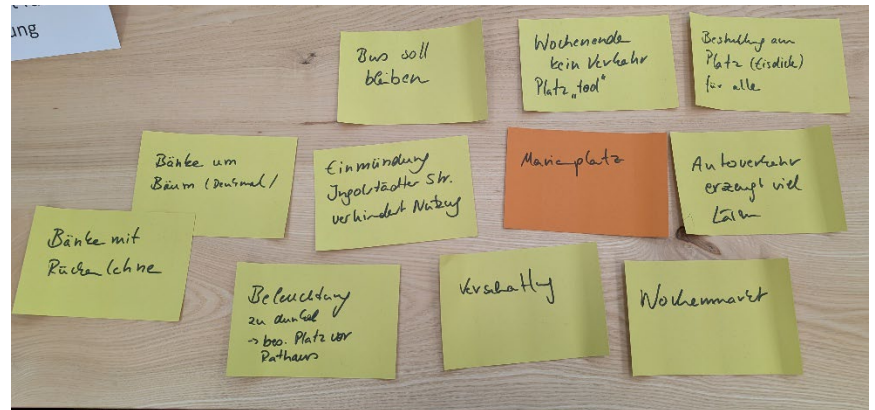 ung
Bus soll
bleiben
Wochenende
kein Verkehr
Platz "tod"
Bestuhlung am
Platz (Eisdiele)
für alle
Bänke um
Bäum (Denkmal)
Einmündung
Ingolstädter Str.
verhindert Nutzung
Marienplatz
Autoverkehr
erzeugt viel
Lärm
Bänke mit
Rückenlehne
Beleuchtung
zu dunkel
-> bes. Platz vor
Rathaus
Verschattung
Wochenmarkt